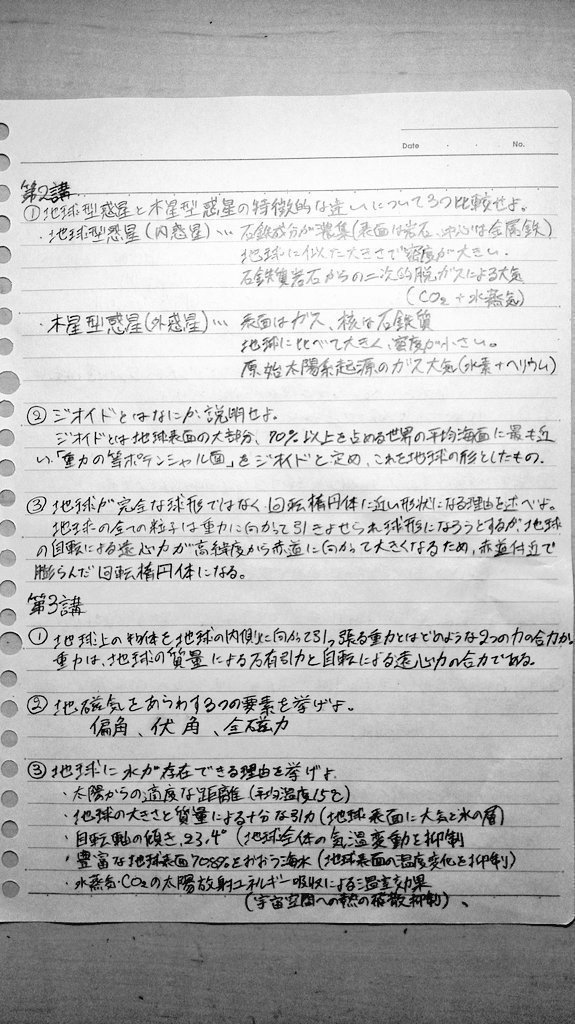 Date ・ ・ No.
第2講
① 地球型惑星と木星型惑星の特徴的な違いについて3つ比較せよ。
・地球型惑星(内惑星)… 石鉄成分が濃集(表面は岩石、中心は金属鉄)
地球に似た大きさで密度が大きい。
石鉄質岩石からの二次的脱ガスによる大気
(CO₂+水蒸気)
・木星型惑星(外惑星)… 表面はガス、核は石鉄質
地球に比べて大きく、密度が小さい。
原始太陽系起源のガス大気(水素+ヘリウム)
② ジオイドとはなにか、説明せよ。
ジオイドとは地球表面の大部分、70%以上を占める世界の平均海面に最も近
い「重力の等ポテンシャル面」をジオイドと定め、これを地球の形としたもの。
③ 地球が完全な球形ではなく回転楕円体に近い形状になる理由を述べよ。
地球の全ての粒子は重力に向かって引きよせられ球形になろうとするが、地球
の自転による遠心力が高緯度から赤道に向かって大きくなるため、赤道付近で
膨らんだ回転楕円体になる。
第3講
① 地球上の物体を地球の内側に向かって引っ張る重力とはどのような2つの力の合力か。
重力は、地球の質量による万有引力と自転による遠心力の合力である。
② 地磁気をあらわす3つの要素を挙げよ。
偏角、伏角、全磁力
③ 地球に水が存在できる理由を挙げよ。
・太陽からの適度な距離(平均温度15℃)
・地球の大きさと質量による十分な引力(地球表面に大気と水の層)
・自転軸の傾き、23.4°(地球全体の気温変動を抑制
・豊富な地球表面70.8%をおおう海水(地球表面の温度変化を抑制)
・水蒸気・CO₂の太陽放射エネルギー吸収による温室効果
(宇宙空間への熱の 抑制)、